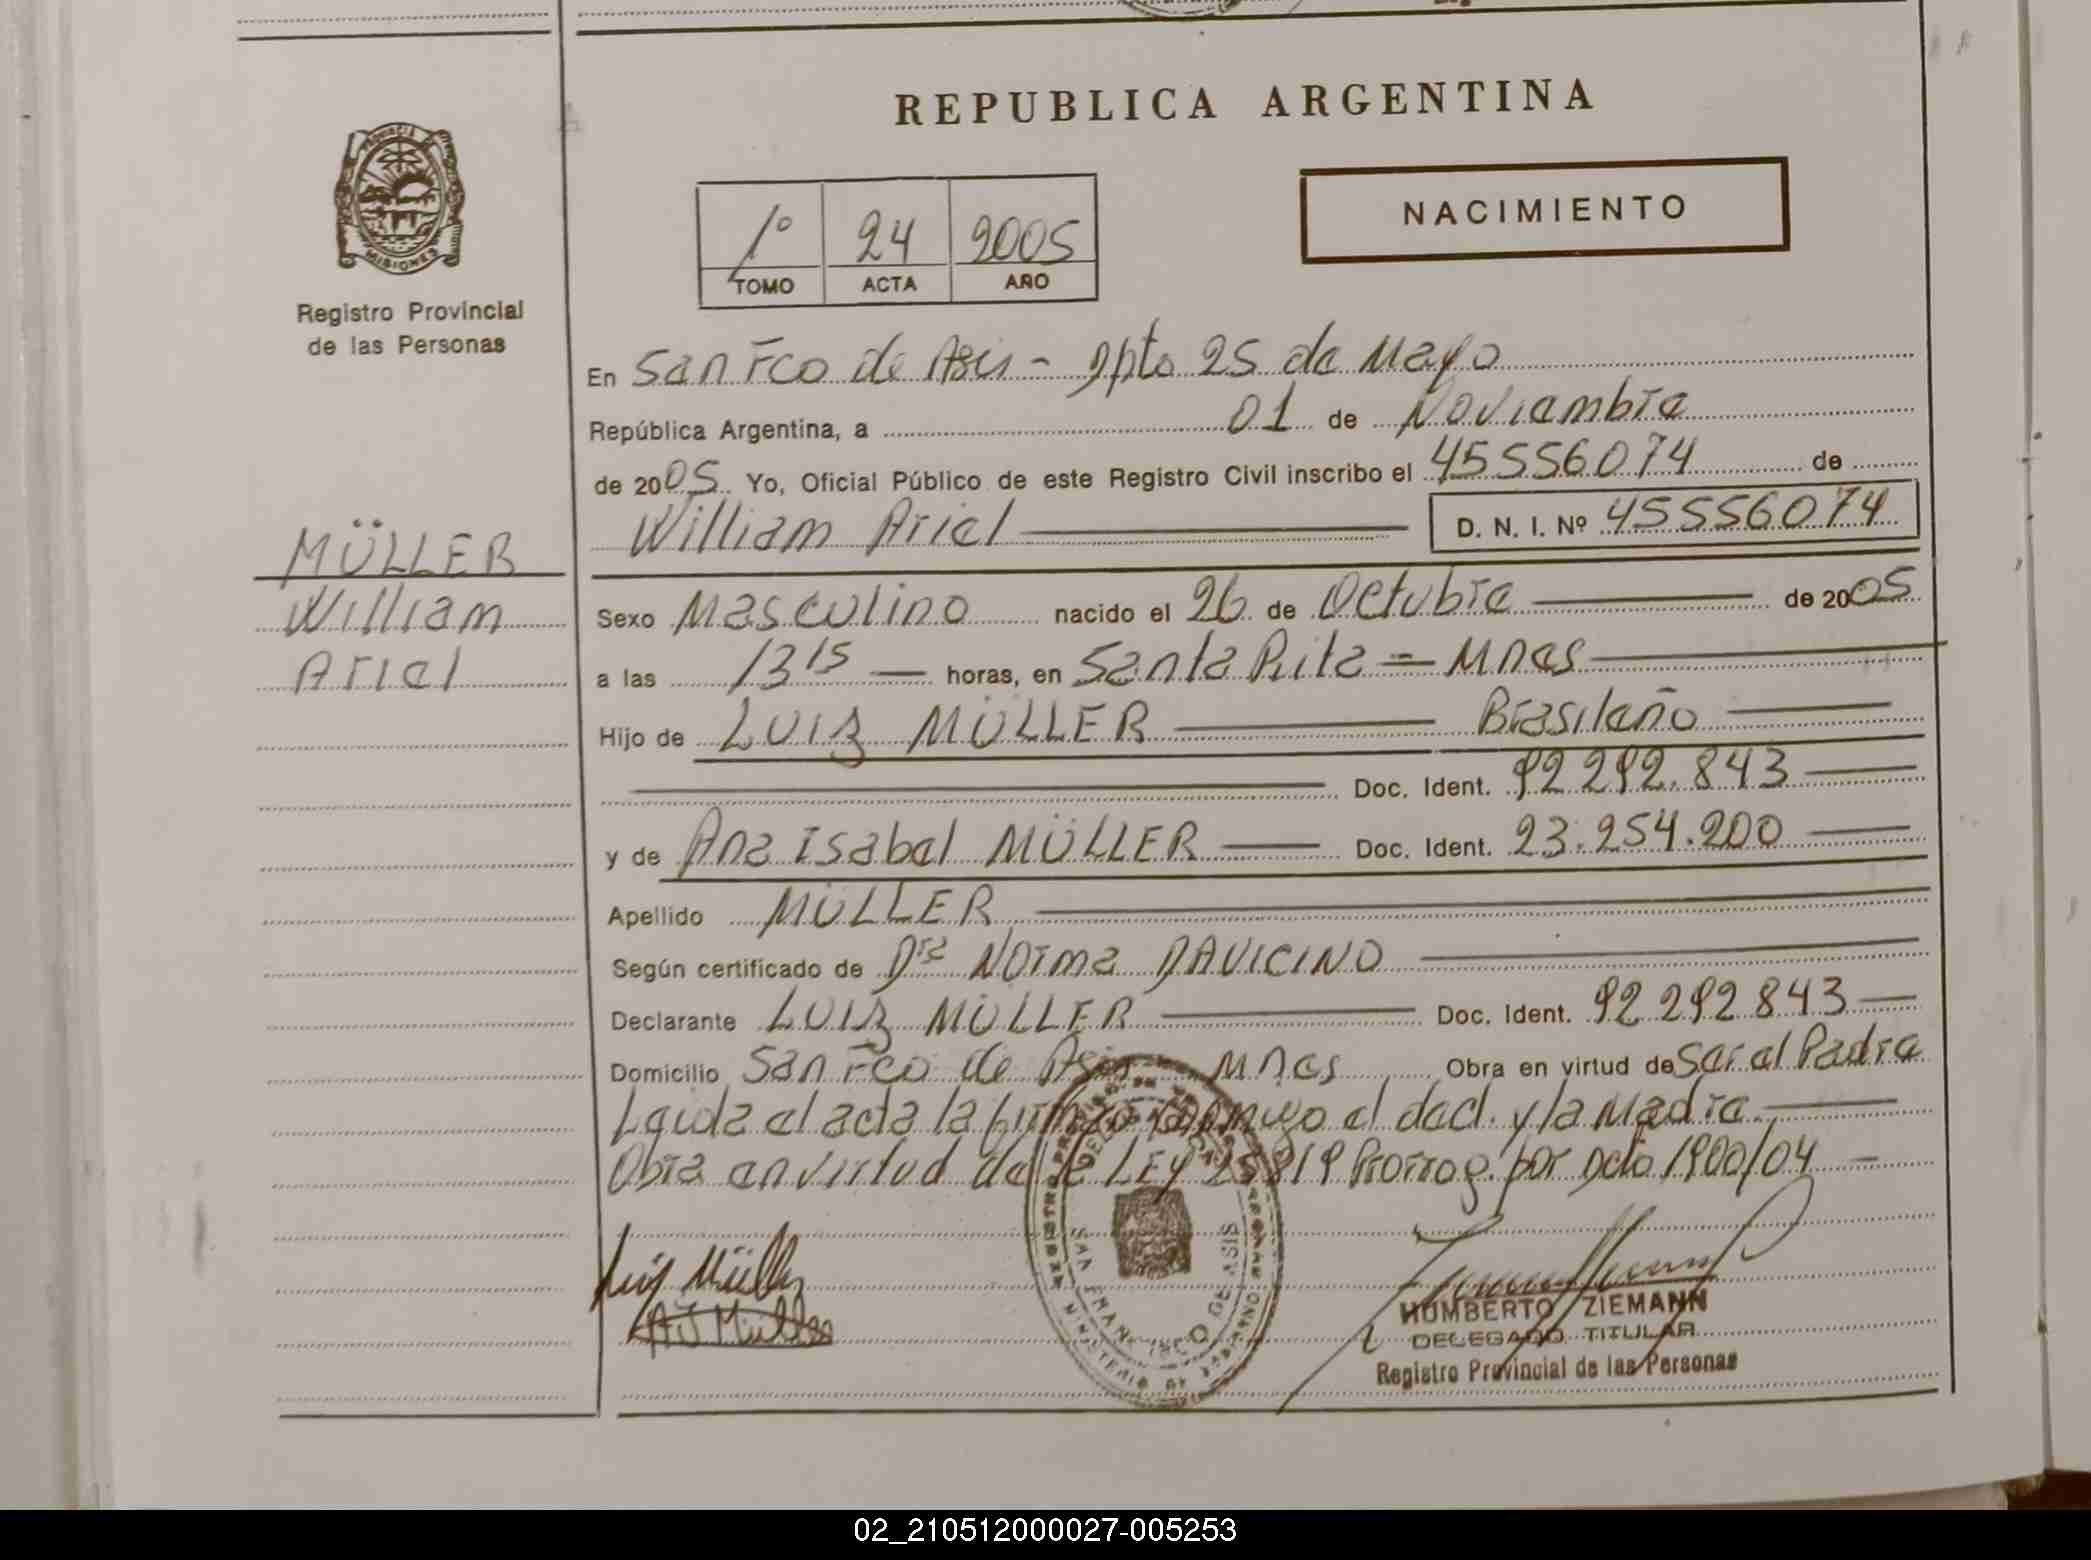 REPUBLICA ARGENTINA
PROVINCIA DE
MISIONES
Registro Provincial
de las Personas
1° 24 2005
TOMO ACTA AÑO
NACIMIENTO
En San Fco de Asis - Dpto 25 de Mayo
República Argentina, a 01 de Noviembre
de 2005 Yo, Oficial Público de este Registro Civil inscribo el 45556074 de
William Ariel D. N. I. Nº 45556074
MÜLLER
William
Ariel
Sexo Masculino nacido el 26 de Octubre de 2005
a las 13 15 horas, en Santa Rita = Mnes
Hijo de LUIZ MÜLLER Brasileño
Doc. Ident. 92 292.843
y de Ana Isabel MÜLLER Doc. Ident. 23.254.200
Apellido MÜLLER
Según certificado de Dra Norma DAVICINO
Declarante LUIZ MÜLLER Doc. Ident. 92 292 843
Domicilio San Fco de Asis Mnes Obra en virtud de Ser el Padre
Leida el acta la firman conmigo el decl. y la Madre
Obra en virtud de la LEY 25819 Prorrog. por Dcto 1900/04
Luiz Müller
A I Müller
SAN FRANCISCO DE ASIS
HUMBERTO ZIEMANN
DELEGADO TITULAR
Registro Provincial de las Personas
02_210512000027-005253